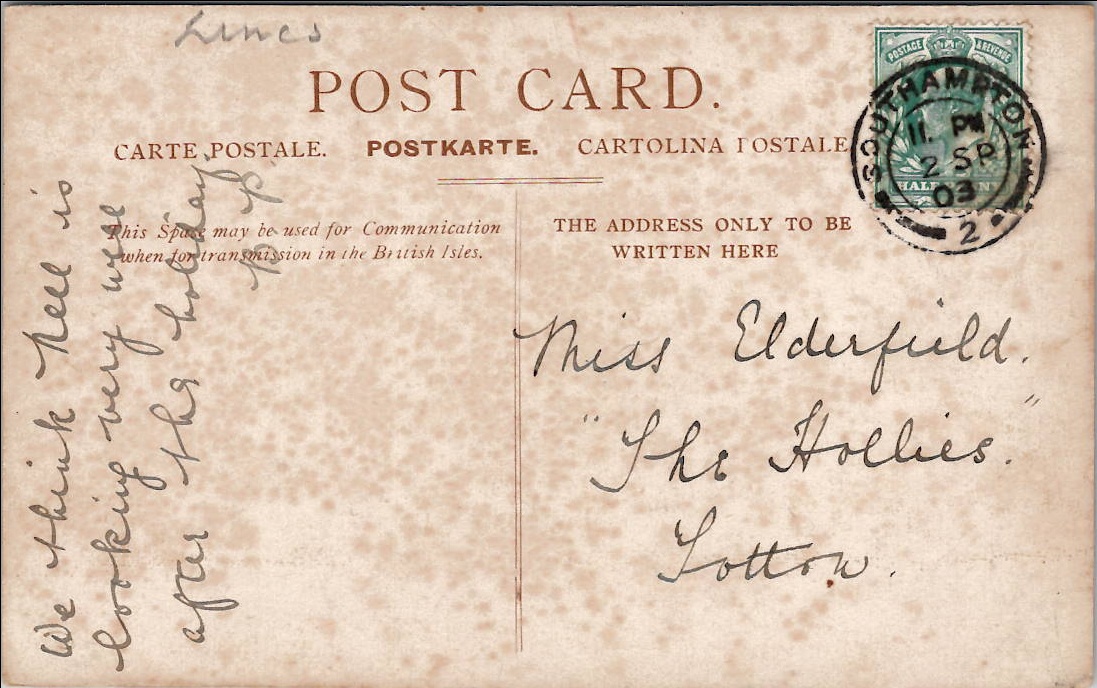 Lincs
POST CARD.
CARTE POSTALE. POSTKARTE. CARTOLINA POSTALE
This Space may be used for Communication
when for transmission in the British Isles.
THE ADDRESS ONLY TO BE
WRITTEN HERE
POSTAGE & REVENUE
HALFPENNY
SOUTHAMPTON
11. PM
2 SP
03
2
We think Nell is
looking very well
after the holiday
Miss Elderfield.
"The Hollies."
Totton.